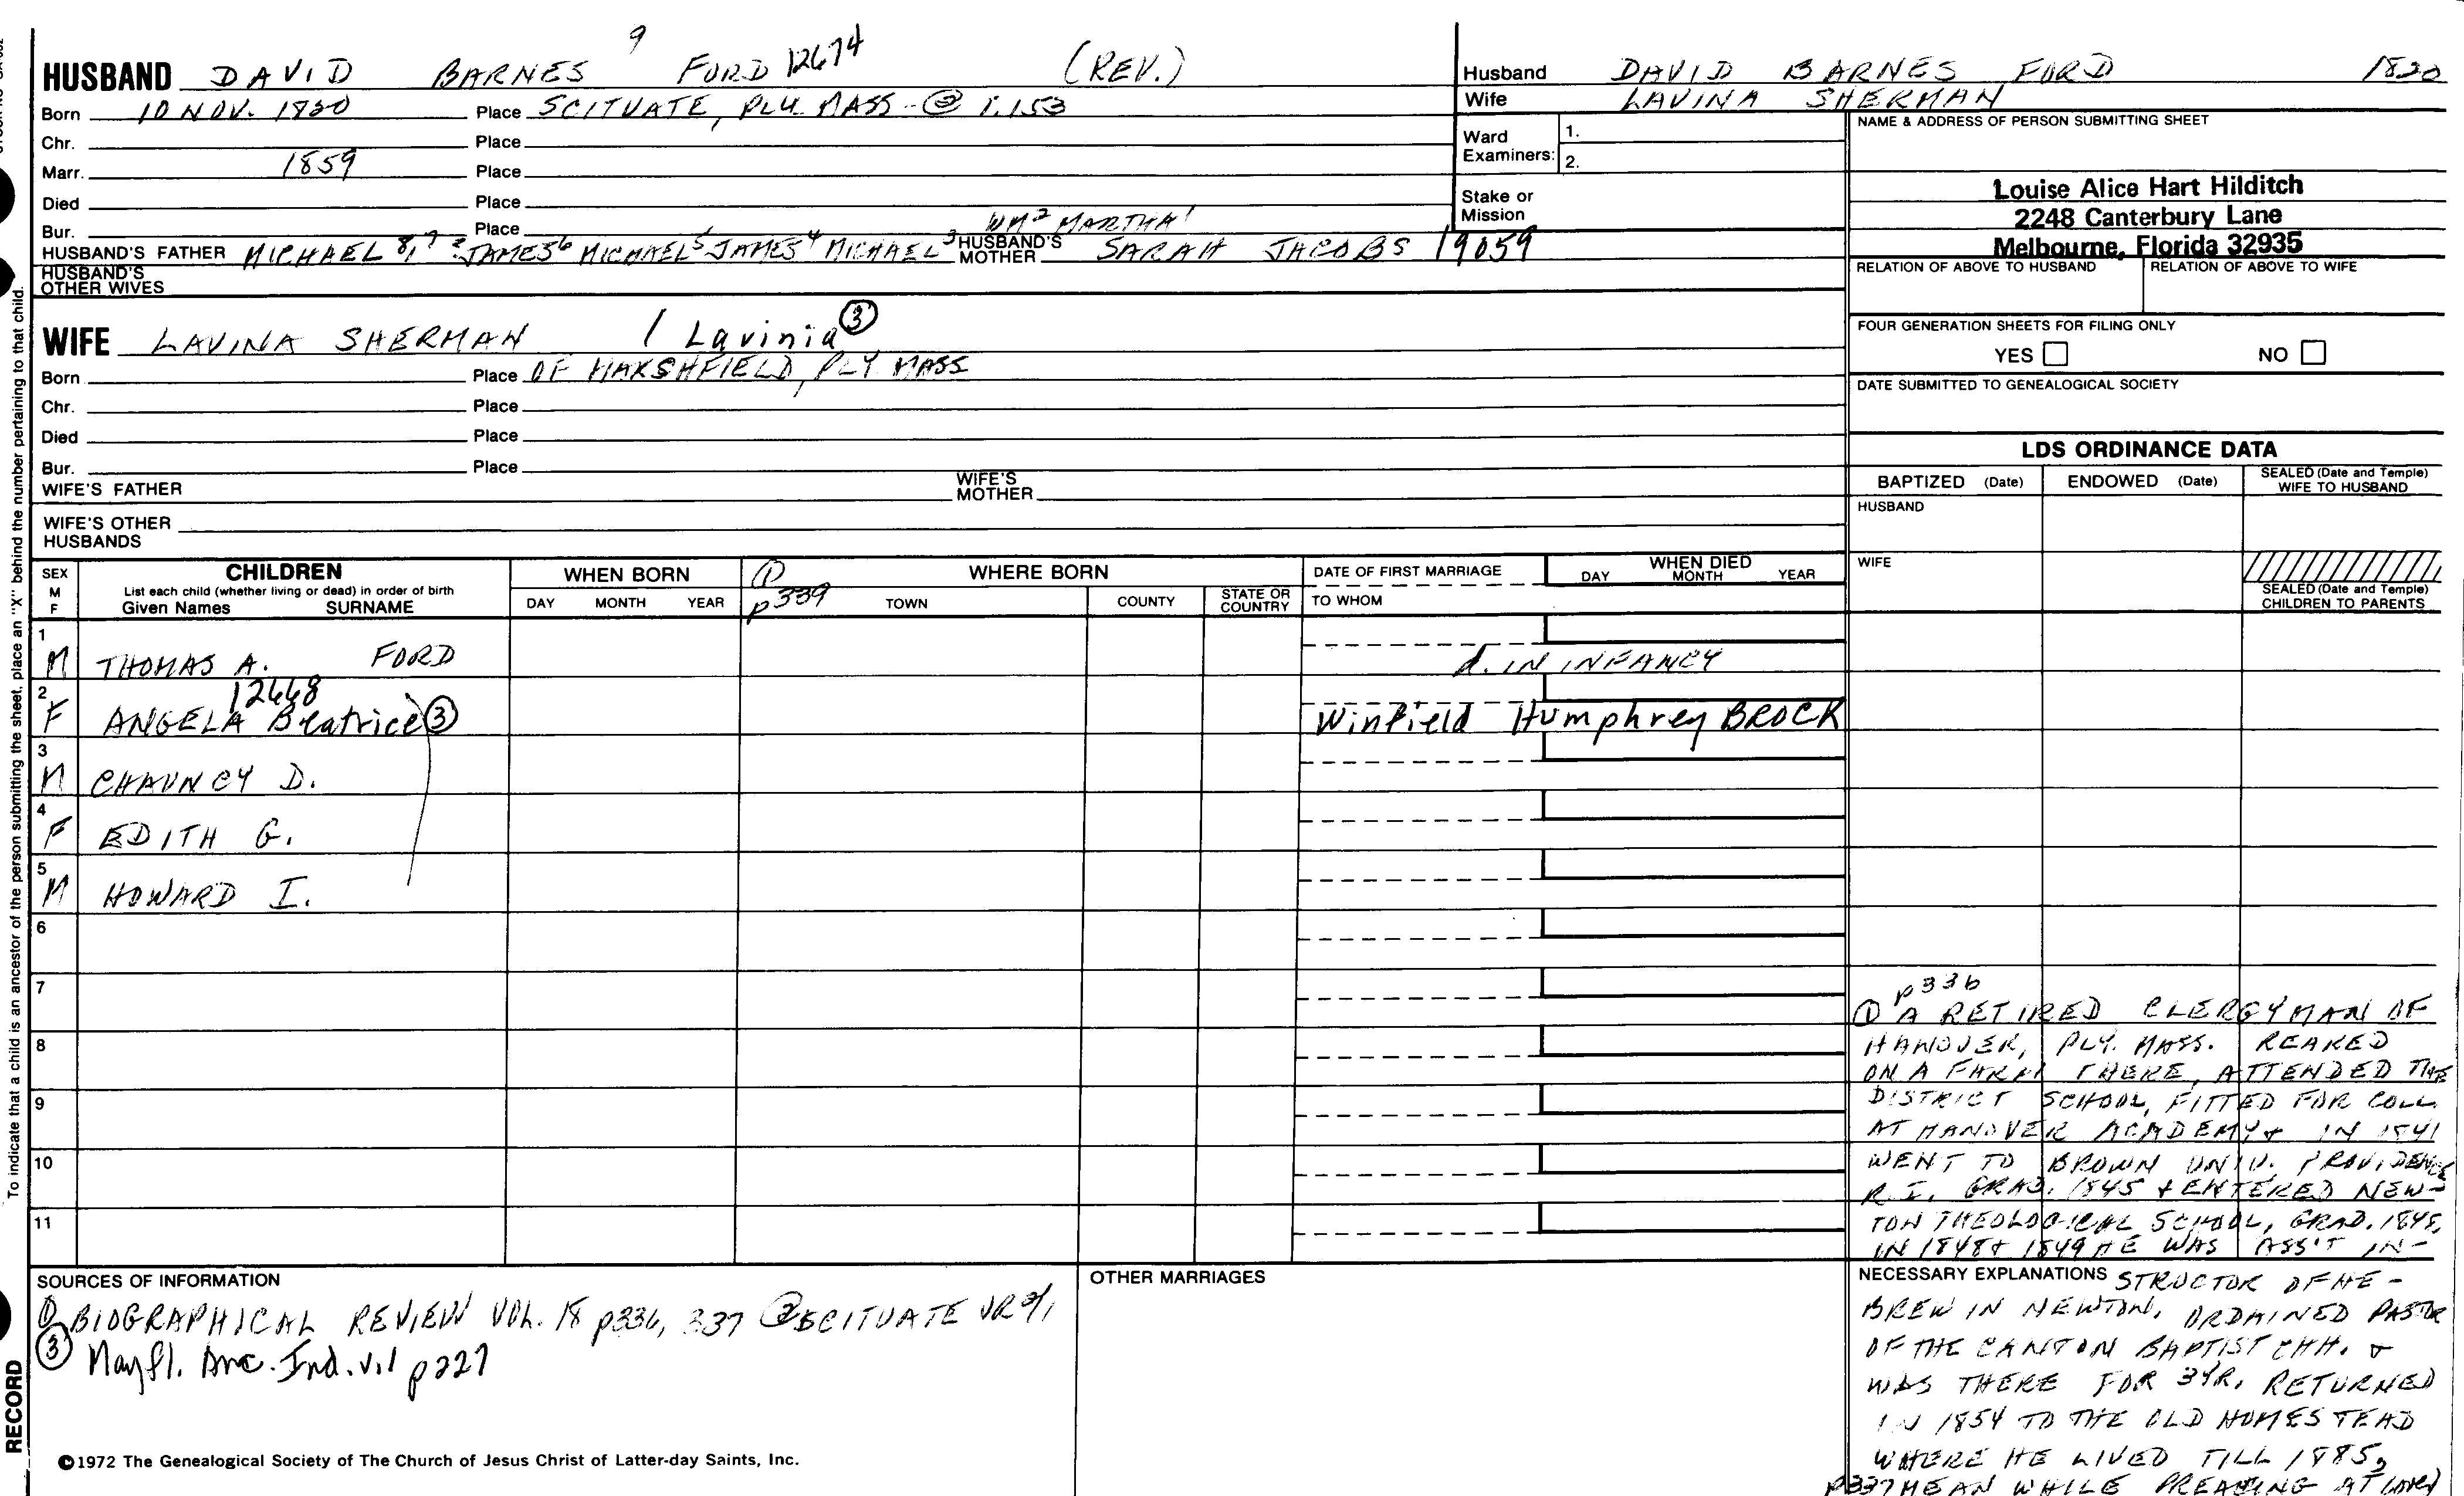 HUSBAND DAVID BARNES 9 FORD 12674 (REV.)
Born 10 NOV. 1820 Place SCITUATE, PLY. MASS - ② 1.153
Chr. Place
Marr. 1859 Place
Died Place
Bur. Place WM² MARTHA¹
HUSBAND'S FATHER MICHAEL 8,7 ? JAMES⁶ MICHAEL⁵ JAMES⁴ MICHAEL³ HUSBAND'S MOTHER SARAH JACOBS 19059
HUSBAND'S OTHER WIVES
WIFE LAVINA SHERMAN / Lavinia ③
Born Place OF MARSHFIELD, PLY MASS
Chr. Place
Died Place
Bur. Place
WIFE'S FATHER WIFE'S MOTHER
WIFE'S OTHER HUSBANDS
Husband DAVID BARNES FORD 1820
Wife LAVINA SHERMAN
Ward Examiners: 1.
2.
Stake or Mission
NAME & ADDRESS OF PERSON SUBMITTING SHEET
Louise Alice Hart Hilditch
2248 Canterbury Lane
Melbourne, Florida 32935
RELATION OF ABOVE TO HUSBAND RELATION OF ABOVE TO WIFE
FOUR GENERATION SHEETS FOR FILING ONLY
YES NO
DATE SUBMITTED TO GENEALOGICAL SOCIETY
LDS ORDINANCE DATA
BAPTIZED (Date) ENDOWED (Date) SEALED (Date and Temple) WIFE TO HUSBAND
HUSBAND
WIFE
SEALED (Date and Temple) CHILDREN TO PARENTS
SEX M F
CHILDREN
List each child (whether living or dead) in order of birth
Given Names SURNAME
WHEN BORN
DAY MONTH YEAR
① p339
WHERE BORN
TOWN COUNTY STATE OR COUNTRY
DATE OF FIRST MARRIAGE
TO WHOM
WHEN DIED
DAY MONTH YEAR
1 M THOMAS A. FORD d. IN INFANCY
12668
2 F ANGELA Beatrice ③ Winfield Humphrey BROCK
3 M CHAUNCY D.
4 F EDITH G.
5 M HOWARD I.
6
7
8
9
10
11
p336
① A RETIRED CLERGYMAN OF
HANOVER, PLY. MASS. REARED
ON A FARM THERE, ATTENDED THE
DISTRICT SCHOOL, FITTED FOR COLL.
AT HANOVER ACADEMY + IN 1841
WENT TO BROWN UNIV. PROVIDENCE
R.I. GRAD. 1845 + ENTERED NEW-
TON THEOLOGICAL SCHOOL, GRAD. 1848,
IN 1848 + 1849 HE WAS ASS'T IN-
NECESSARY EXPLANATIONS STRUCTOR OF HE-
BREW IN NEWTON, ORDAINED PASTOR
OF THE CANTON BAPTIST CHH. +
WAS THERE FOR 3 YR, RETURNED
IN 1854 TO THE OLD HOMESTEAD
WHERE HE LIVED TILL 1885,
p337 MEAN WHILE PREACHING AT
SOURCES OF INFORMATION
① BIOGRAPHICAL REVIEW VOL. 18 p336, 337 ② SCITUATE VR
③ Mayfl. Anc. Ind. v.1 p227
OTHER MARRIAGES
©1972 The Genealogical Society of The Church of Jesus Christ of Latter-day Saints, Inc.
To indicate that a child is an ancestor of the person submitting the sheet, place an "X" behind the number pertaining to that child.
RECORD